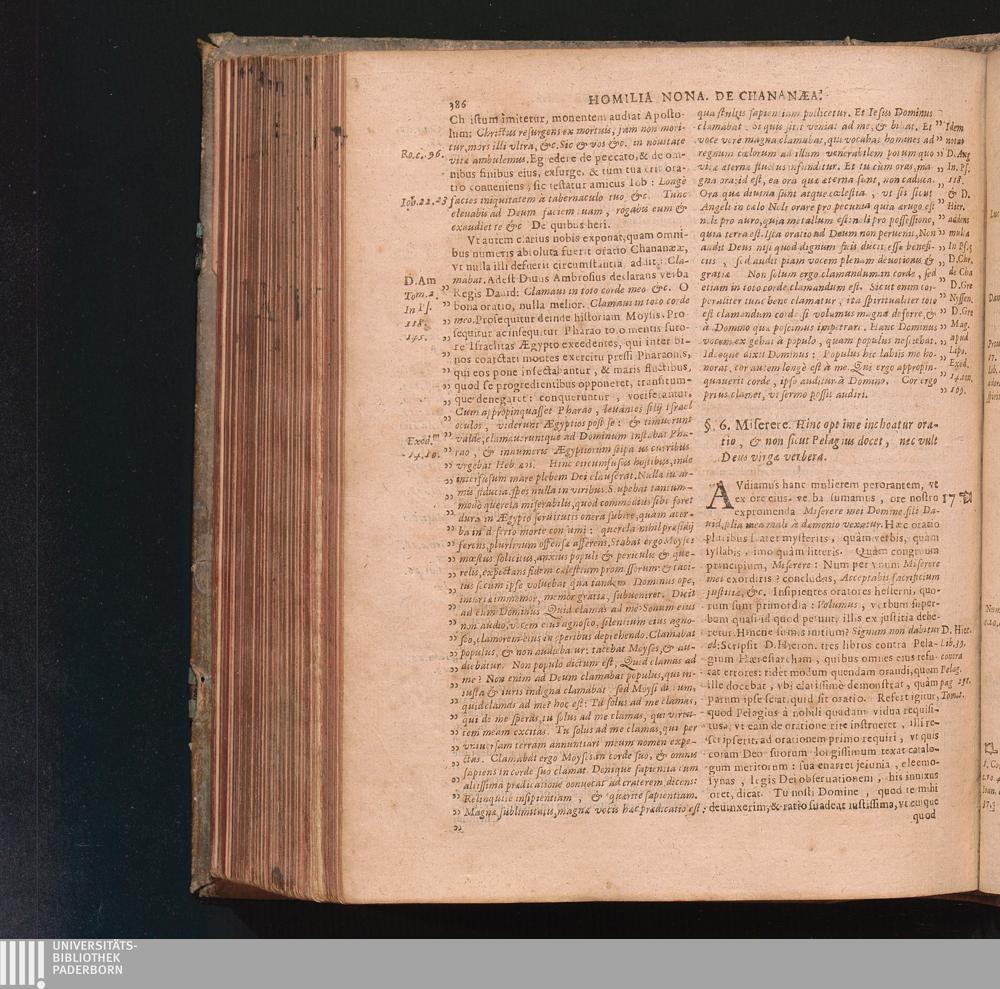 386
HOMILIA NONA. DE CHANANÆA.
Ch istum imitetur, monentem audiat Aposto-
lum: Christus resurgens ex mortuis, jam non mori-
tur, mors illi vltra, &c. Sic & vos &c. in nouitate
Ro.c.,96.
vitæ ambulemus. Eg edere de peccato, & de om-
nibus finibus eius, exsurge, & tum tua erit ora-
tio conueniens, sic testatur amicus Iob: Longè
Iob.22.23
facies iniquitatem à tabernaculo tuo &c. Tunc
eleuabis ad Deum faciem tuam, rogabis eum &
exaudiet te &c De quibus heri.
Vt autem clarius nobis exponat, quam omni-
bus numeris absoluta fuerit oratio Chananææ,
vt nulla illi defuerit circumstantia, addit: Cla-
mabat. Adest Diuus Ambrosius declarans verba
Regis Dauid: Clamaui in toto corde meo &c. O
bona oratio, nulla melior. Clamaui in toto corde
meo. Prosequitur deinde historiam Moysis. Pro
D.Am
Tom.2.
In Ps.
118.
145.
sequitur ac insequitur Pharao toto mentis furo-
re Israelitas Ægypto excedentes, qui inter bi-
nos coarctati montes exercitu pressi Pharaonis,
qui eos pone insectabantur, & maris fluctibus,
quod se progredientibus opponeret, transitum-
que denegaret: conqueruntur, vociferantur.
Cum appropinquasset Pharao, leuantes filij Israel
oculos, viderunt Ægyptios post se: & timuerunt
valde, clamaueruntque ad Dominum instabat Pha-
Exod.
14.10.
rao, & innumeris Ægyptiorum stipatus curribus
vrgebat Hebræū. Hinc circumfusus hostibus, inde
interfusum mare plebem Dei clauserat. Nulla in ar-
mis fiducia, spes nulla in viribus. Supebat tantum-
modo querela miserabilis, quod commodius sibi foret
dura in Ægypto seruitutis onera subire, quàm acer-
ba in deserto morte consumi: querela nihil præsidij
ferens, plurimum offensæ afferens. Stabat ergo Moyses
mœstus, solicitus, anxius populi & periculis & que-
relis, expectans fidem cælestium promissorum: & taci-
tus secum ipse voluebat quâ tandem Dominus ope,
iniuriæ immemor, memor gratiæ, subueniret. Dicit
ad eum Dominus Quid clamas ad me? Sonum eius
non audio, vocem eius agnosco, silentium eius agno-
sco, clamorem eius in operibus deprehendo. Clamabat
populus, & non audiebatur: tacebat Moyses, & au-
diebatur. Non populo dictum est, Quid clamas ad
me? Non enim ad Deum clamabat populus, qui in-
iusta & iuris indigna clamabat sed Moysi dictum,
quid clamas ad me? hoc est: Tu solus ad me clamas,
qui de me speras, tu solus ad me clamas, qui virtu-
tem meam excitas. Tu solus ad me clamas, qui per
vniuersam terram annuntiari meum nomen expe-
ctas. Clamabat ergo Moyses in corde suo, & omnis
sapiens in corde suo clamat. Denique sapientia cum
altissima prædicatione conuocat ad craterem, dicens:
Relinquite insipientiam, & quærite sapientiam.
Magnæ sublimitatis, magnæ vocis hæc prædicatio est,
qua stultis sapientiam pollicetur. Et Iesus Dominus
clamabat. Si quis sitit veniat ad me, & bibat. Et
voce verè magna clamabat, qui vocabat homines ad
regnum cœlorum ad illum venerabilem potum quo
vitæ æternæ fluctus infunditur. Et tu cum oras, ma
gna ora: id est, ea ora quæ æterna sunt, non caduca.
Ora quæ diuina sunt atque cælestia, vt sis sicut
Angeli in cælo Noli orare pro pecunia quia ærugo est
noli pro auro, quia metallum est: noli pro possessione,
quia terra est. Ista oratio ad Deum non peruenit. Non
audit Deus nisi quod dignum suis ducit esse benefi-
ciis, sed audit piam vocem plenam deuotionis &
gratiæ Non solum ergo clamandum in corde, sed
etiam in toto corde clamandum est. Sicut enim cor-
poraliter tunc bene clamatur, ita spiritualiter toto
est clamandum corde si volumus magna deferre, &
à Domino quæ poscimus impetrare. Hanc Dominus
vocem exigebat à populo, quam populus nesciebat.
Ideoque dixit Dominus: Populus hic labiis me ho-
norat, cor autem longè est à me. Qui ergo appropin-
quauerit corde, ipse auditur à Domino. Cor ergo
prius clamet, vt sermo possit audiri.
Idem
notat
D.Aug
In. Ps.
118.
& D.
Hier.
addens
multa
In Ps.5
D.Chr.
de Cha
D.Gre
Nyssen.
D.Gre
Mag.
apud
Lipo.
Exod.
14.tom.
109.
§. 6. Miserere. Hinc optime inchoatur ora-
tio, & non sicut Pelagius docet, nec vult
Deus virgæ verbera.
AVdiamus hanc mulierem perorantem, vt
ex ore eius verba sumamus, ore nostro 17
expromenda Miserere mei Domine, fili Da-
uid, filia mea malè à demonio vexatur. Hæc oratio
pluribus scatet mysteriis, quàm verbis, quàm
syllabis, imo quàm litteris. Quàm congruum
principium, Miserere: Num per vnum Miserere
mei exorditis? concludas, Acceptabis sacrificium
justitiæ, &c. Insipientes oratores hesterni, quo-
rum sunt primordia: Volumus, verbum super-
bum quasi id quod petunt, illis ex justitia debe-
retur. Hinene sumis initium? Signum non dabitur
ei: Scripsit D. Hieron. tres libros contra Pela-
gium Hæresiarcham, quibus omnes eius refu-
tat errores: ridet modum quendam orandi, quem
ille docebat, vbi clarissimè demonstrat, quàm
parum ipse sciat, quid sit oratio. Refert igitur,
quod Pelagius à nobili quadam vidua requisi-
tus, vt eam de oratione rite instrueret, illi re-
scripserit, ad orationem primo requiri, vt quis
coram Deo suorum longissimum texat catalo-
gum meritorum: sua enarret jejunia, eleemo-
synas, legis Dei obseruationem, his innixus
oret, dicat. Tu nosti Domine, quod te mihi
deuinxerim, & ratio suadeat iustissima, vt cuique
D. Hier.
Lib.39.
contra
Pelag.
pag 191.
Tom.1.
quod
UNIVERSITÄTS-
BIBLIOTHEK
PADERBORN